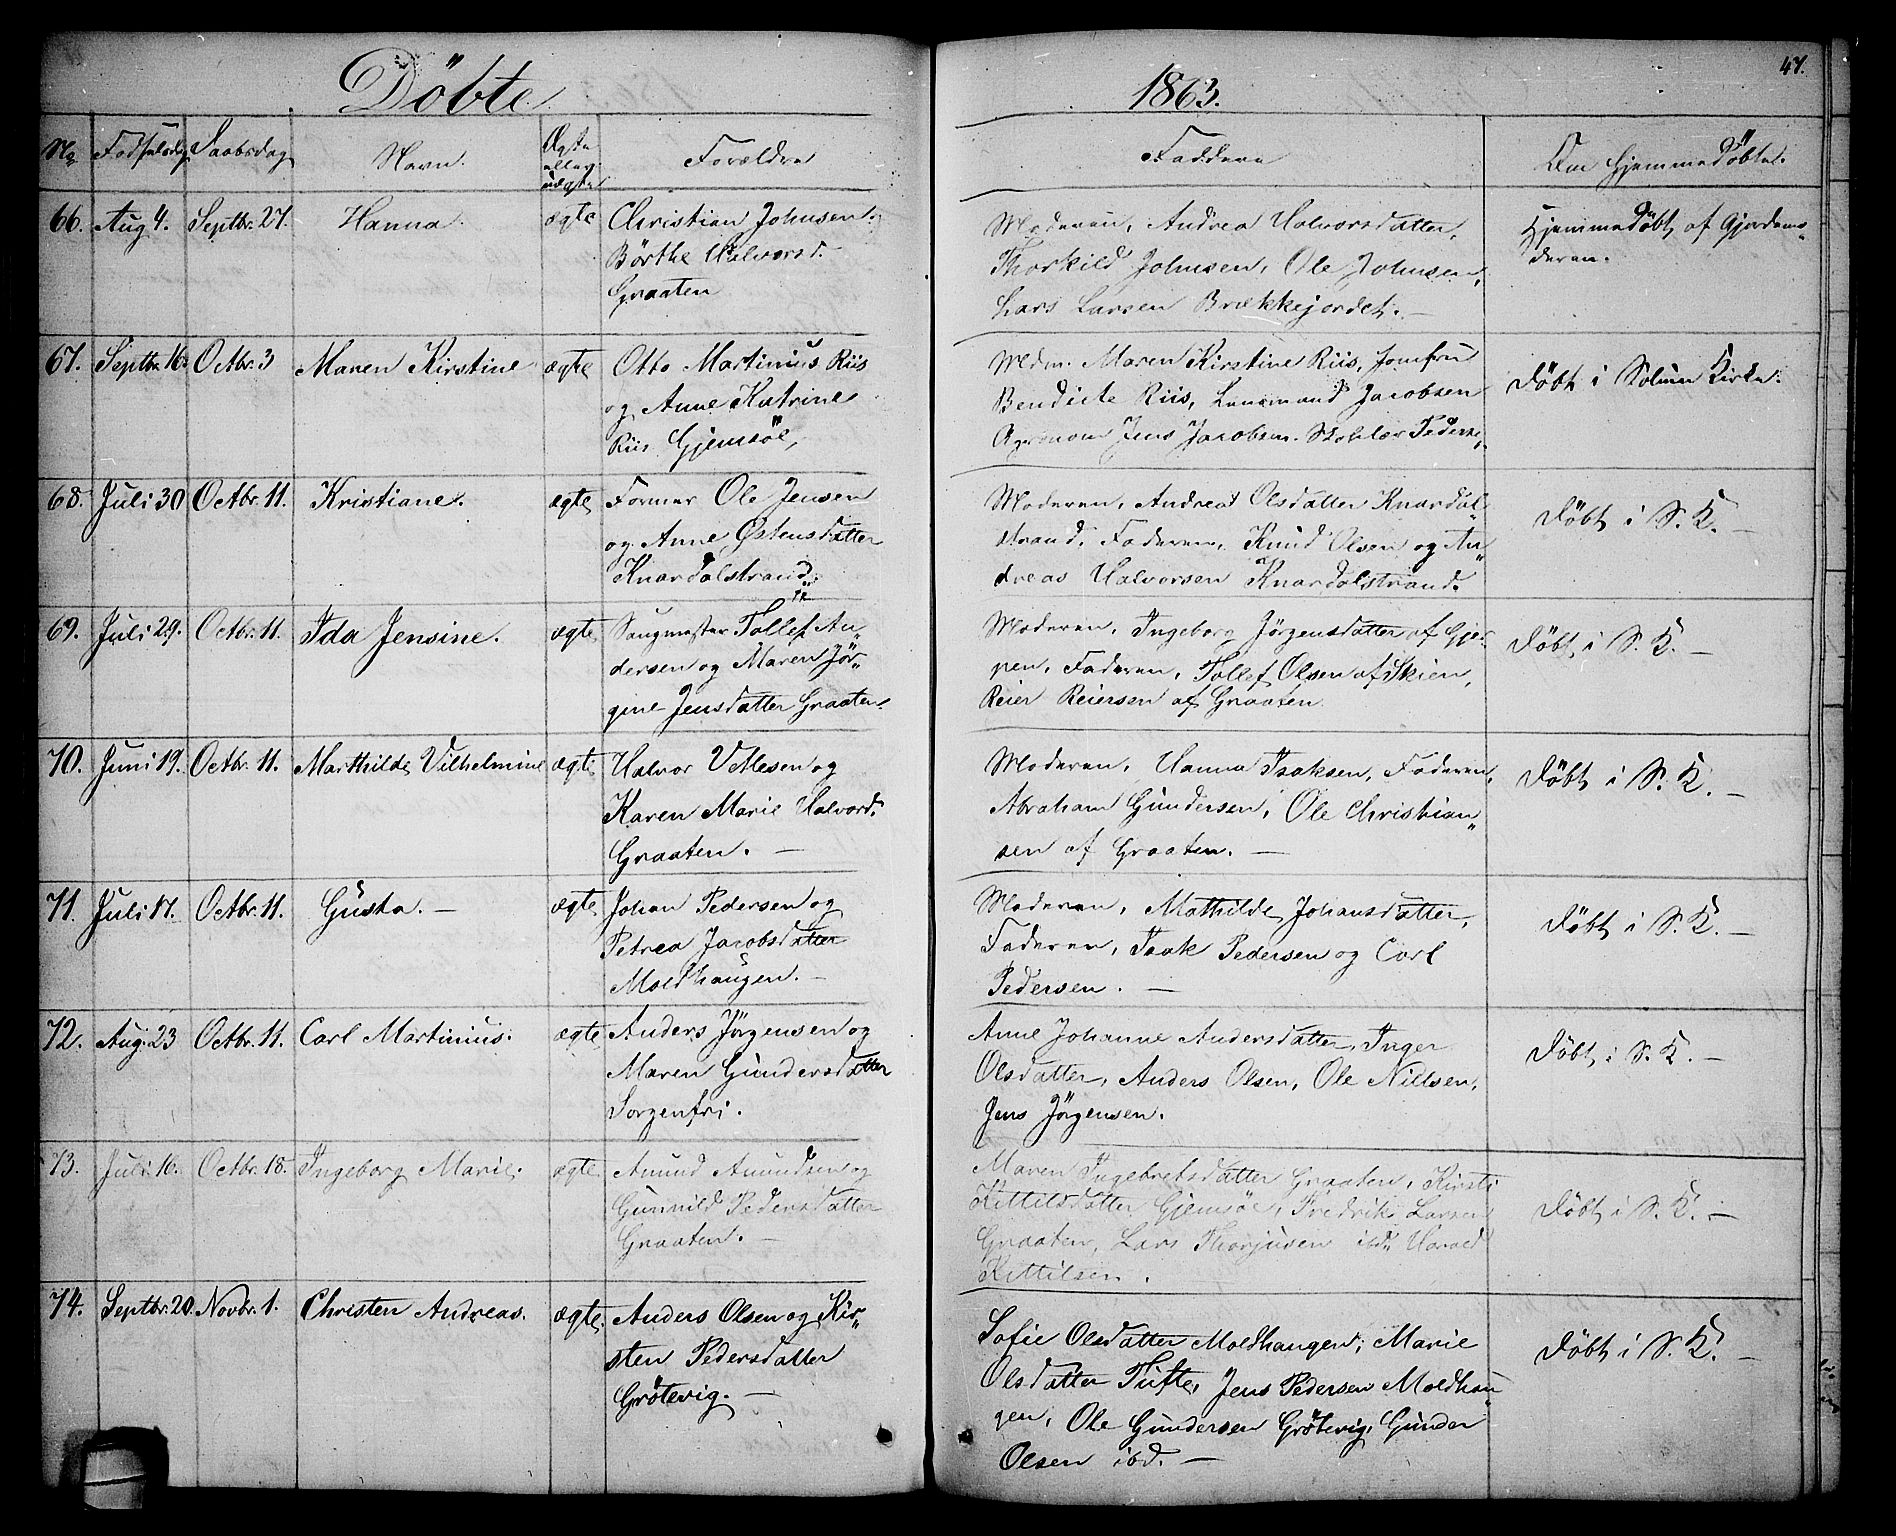 Döbte
1863.
47.
No Födselsdag Daabsdag Navn. Ægte eller uægte Forældre
Faddere Om Hjemmedöbt.
66. Aug 4. Septbr. 27. Hanna. ægte Christian Johnsen.
Börthe Halvorsd.
Graaten
Moderen, Andrea Halvorsdatter,
Thorkild Johnsen, Ole Johnsen,
Lars Larsen Brækkejordet. —
Hjemmedöbt af Gjordemo-
deren.
67. Septbr. 16. Octbr. 3 Maren Kirstine ægte Otto Martinius Riis
og Anne Katrine
Riis Gjemsöe,
Mdm. Maren Kirstine Riis, Jomfru
Bendicte Riis, Lensmand Jacobsen
Agronom Jens Jacobsen.
Döbt i Solum Kirke.
68. Juli 30 Octbr. 11. Kristiane. ægte Former Ole Jensen
og Anne Østensdatter
Knardalstrand.
Moderen, Andrea Olsdatter Knardal-
strand, Faderen, Knud Olsen og An-
dreas Halvorsen Knardalstrand.
Döbt i S. K. —
69. Juli 29. Octbr. 11. Ida Jensine. ægte Saugmester Tollef An-
dersen og Maren Jör-
gine Jensdatter Graaten.
Moderen, Ingeborg Jörgensdatter af Gjer-
pen, Faderen, Tollef Olsen af Skien,
Reier Reiersen af Graaten.
Döbt i S. K. —
70. Juni 19. Octbr. 11. Marthilde Vilhelmine ægte Halvor Vetlesen og
Karen Marie Halvord.
Graaten. —
Moderen, Hanna Isaksen, Faderen,
Abraham Gundersen, Ole Christian-
sen af Graaten. —
Döbt i S. K. —
71. Juli 17. Octbr. 11. Gusta. — ægte Johan Pedersen og
Petrea Jacobsdatter
Moldhaugen. —
Moderen, Mathilde Johansdatter,
Faderen, Isak Pedersen og Carl
Pedersen. —
Döbt i S. K. —
72. Aug. 23 Octbr. 11. Carl Martinius. ægte Anders Jörgensen og
Maren Gundersdatter
Sorgenfri.
Anne Johanne Andersdatter, Inger
Olsdatter, Anders Olsen, Ole Nillsen,
Jens Jörgensen.
Döbt i S. K. —
73. Juli 16. Octbr. 18. Ingeborg Marie. ægte Amund Amundsen og
Gunnild Pedersdatter
Graaten. —
Maren Ingebretsdatter Graaten, Kirsti
Kittilsdatter Gjemsöe, Fredrik Larsen
Graaten, Lars Thorjusen ibd.
Kittilsen.
Döbt i S. K. —
74. Septbr. 20. Novbr. 1. Christen Andreas. ægte Anders Olsen og Kir-
sten Pedersdatter
Grötevig. —
Sofie Olsdatter Moldhaugen, Marie
Olsdatter Tufte, Jens Pedersen Moldhau-
gen, Ole Gundersen Grötevig, Gunder
Olsen ibd. —
Döbt i S. K. —